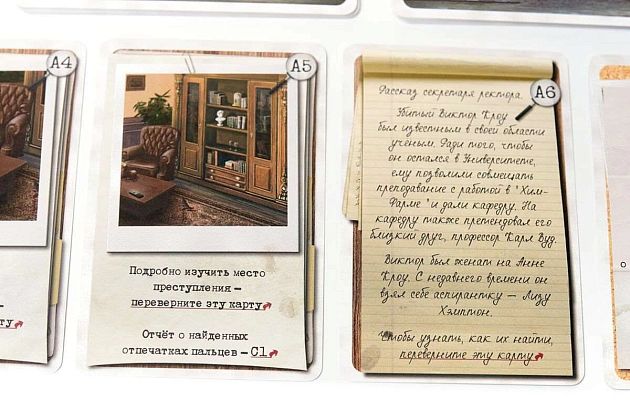 A4
ту
A5
Подробно изучить место
преступления —
переверните эту карту
Отчёт о найденных
отпечатках пальцев — С1
A6
Рассказ секретаря ректора.
Убитый Виктор Кроу
был известным в своей области
учёным. Ради того, чтобы
он остался в Университете,
ему позволили совмещать
преподавание с работой в "Хим-
Фарме" и дали кафедру. На
кафедру также претендовал его
близкий друг, профессор Карл Вуд.
Виктор был женат на Анне
Кроу. С недавнего времени он
взял себе аспирантку — Лизу
Хэмптон.
Чтобы узнать, как их найти,
переверните эту карту